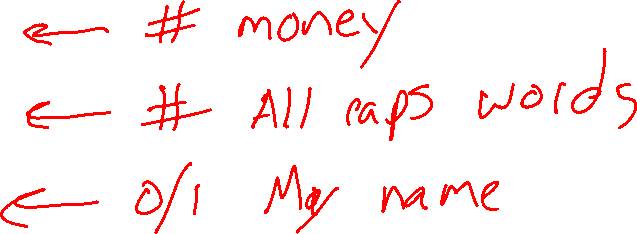 ← # money
← # All caps words
← 0/1 My name